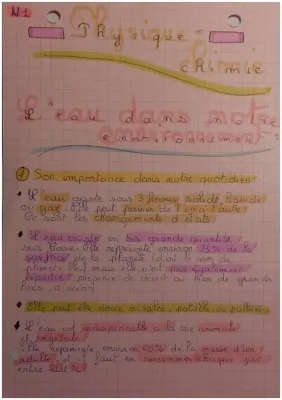 N°1
Physique-
chimie
L'eau dans notre
environnement
1) Son importance dans notre quotidien
L'eau existe sous 3 formes solide, liquide
ou gaz. Elle peut passer de l'un à l'autre
Ce sont les changements d'états.
L'eau existe en très grande quantité
sur Terre. Elle représente environ 75% de la
surface de la planète (d'où le nom de
planète bleue) mais elle n'est pas également
répartie (présence de désert au bien de grands
Elle peut être douce ou salée, potable ou
L'eau est indispensable à la vie animale
et végétale
Elle représente environ 60% de la masse d'un
adulte, il faut en consommer chaque jour
entre